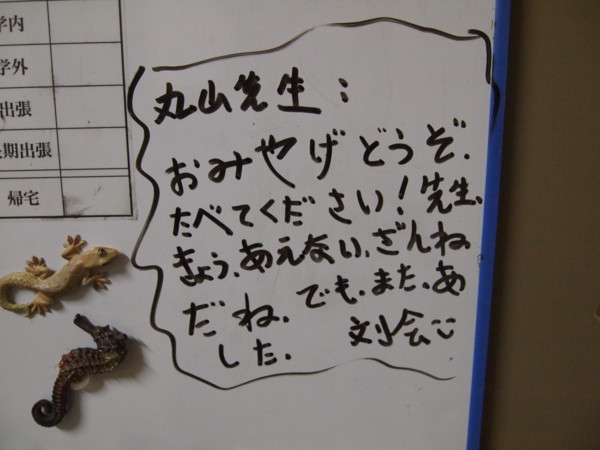 学内
学外
出張
長期出張
帰宅
丸山先生:
おみやげどうぞ.
たべてください!先生、
きょう、あえない、ざんね
だね、でも、また、あ
した. 刘会